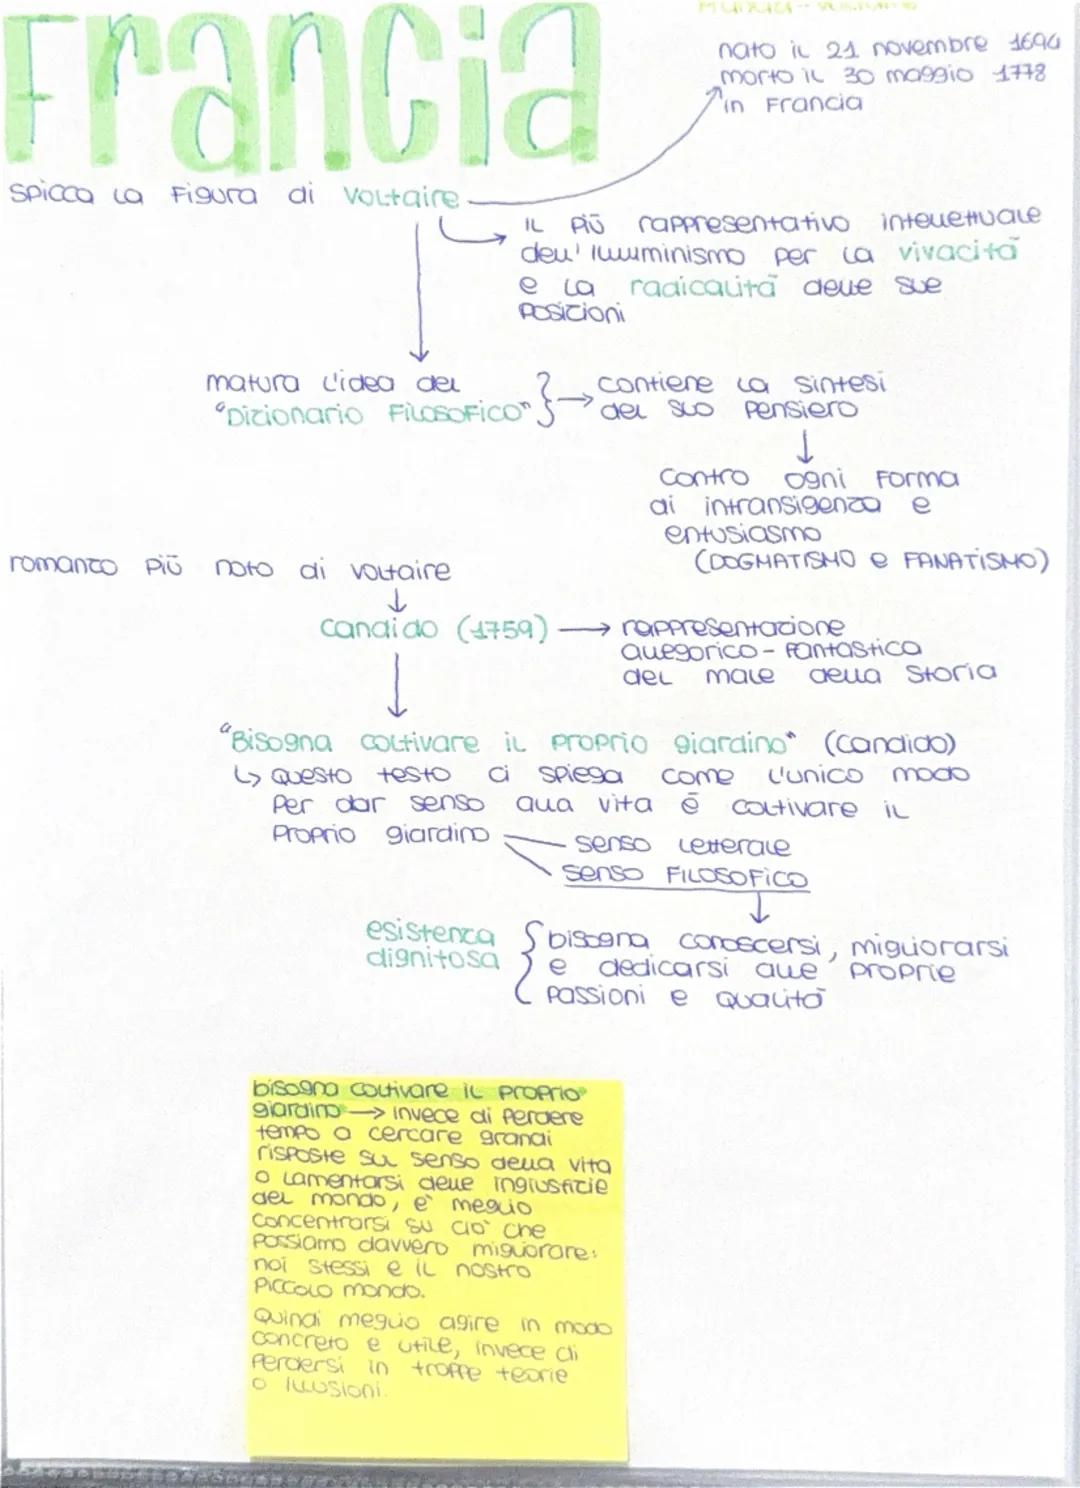 Francia
nato il 21 novembre 1694
morto il 30 maggio 1778
in Francia
spicca la figura di Voltaire
il più rappresentativo intellettuale
dell'Illuminismo per la vivacità
e la radicalità delle sue
posizioni
matura l'idea del
"Dizionario Filosofico"
contiene la sintesi
del suo pensiero
contro ogni forma
di intransigenza e
entusiasmo
(DOGMATISMO e FANATISMO)
romanzo più noto di Voltaire
Candido (1759)
rappresentazione
allegorico-fantastica
del male della storia
"Bisogna coltivare il proprio giardino" (Candido)
↳ Questo testo ci spiega come l'unico modo
per dar senso alla vita è coltivare il
proprio giardino
senso letterale
senso FILOSOFICO
esistenza
dignitosa
bisogna conoscersi, migliorarsi
e dedicarsi alle proprie
passioni e qualità
bisogna coltivare il proprio
giardino → invece di perdere
tempo a cercare grandi
risposte sul senso della vita
o lamentarsi delle ingiustizie
del mondo, è meglio
concentrarsi su ciò che
possiamo davvero migliorare:
noi stessi e il nostro
piccolo mondo.
Quindi meglio agire in modo
concreto e utile, invece di
perdersi in troppe teorie
o illusioni.